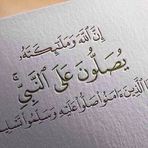 إِنَّ ٱللَّهَ وَمَلَٰٓئِكَتَهُۥ
يُصَلُّونَ عَلَى ٱلنَّبِيِّ
ٱلَّذِينَ ءَامَنُوا۟ صَلُّوا۟ عَلَيْهِ وَسَلِّمُوا۟